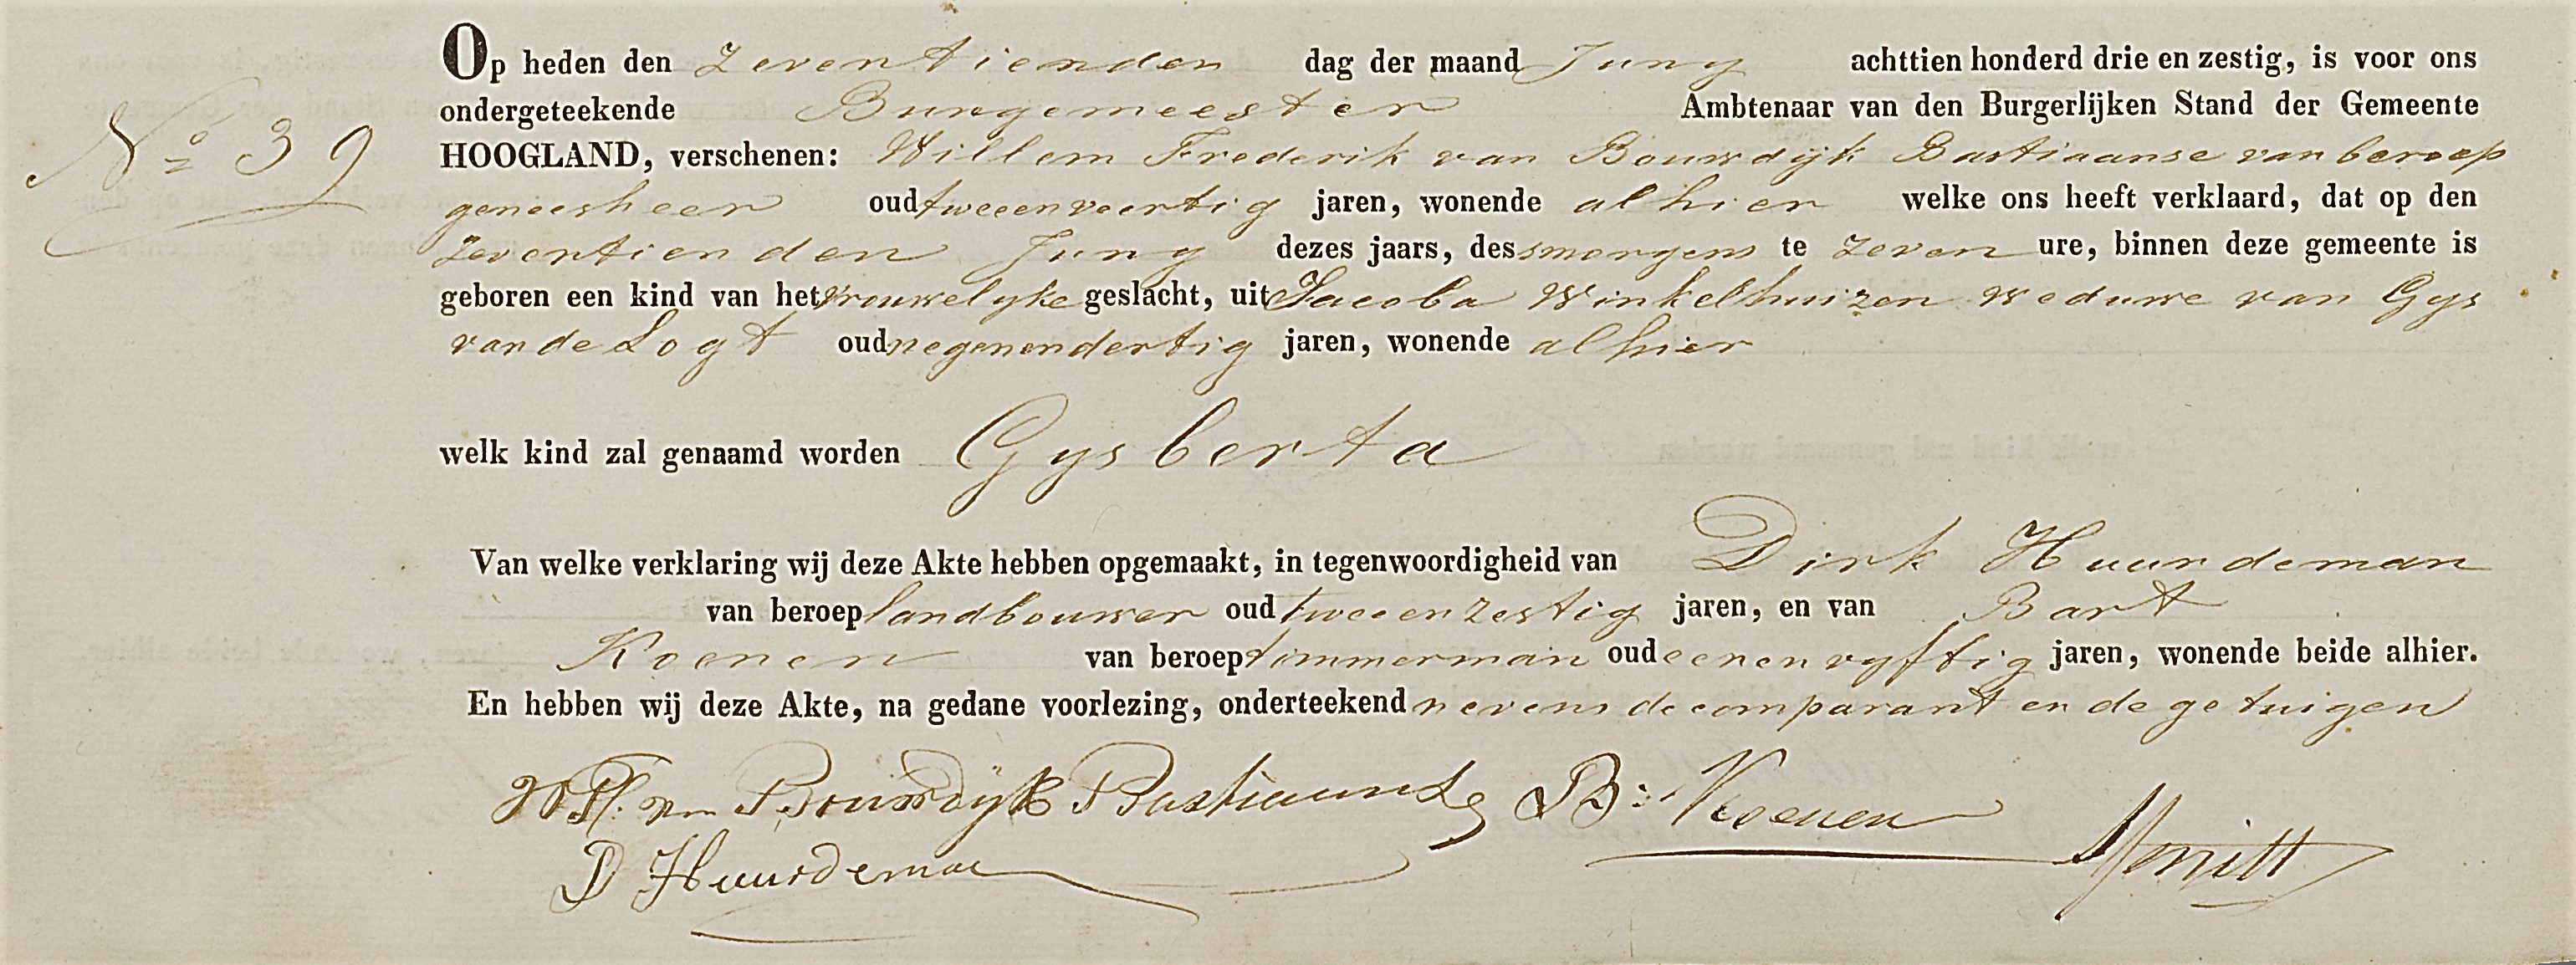 Op heden den zeventienden dag der maand Juny achttien honderd drie en zestig, is voor ons
ondergeteekende Burgemeester Ambtenaar van den Burgerlijken Stand der Gemeente
No 39
HOOGLAND, verschenen: Willem Frederik van Bouwdijk Bastiaanse van beroep
geneesheer oud tweeenveertig jaren, wonende alhier welke ons heeft verklaard, dat op den
zeventienden Juny dezes jaars, des smorgens te zeven ure, binnen deze gemeente is
geboren een kind van het vrouwelyke geslacht, uit Jacoba Winkelhuizen weduwe van Gys
van de Logt oud negenendertig jaren, wonende alhier
welk kind zal genaamd worden Gysberta
Van welke verklaring wij deze Akte hebben opgemaakt, in tegenwoordigheid van Dirk Huurdeman
van beroep landbouwer oud tweeenzestig jaren, en van Bart
Koenen van beroep timmerman oud eenenvyftig jaren, wonende beide alhier.
En hebben wij deze Akte, na gedane voorlezing, onderteekend nevens de comparant en de getuigen
WF. van Bouwdÿk Bastiaanse B: Koenen
D Huurdeman